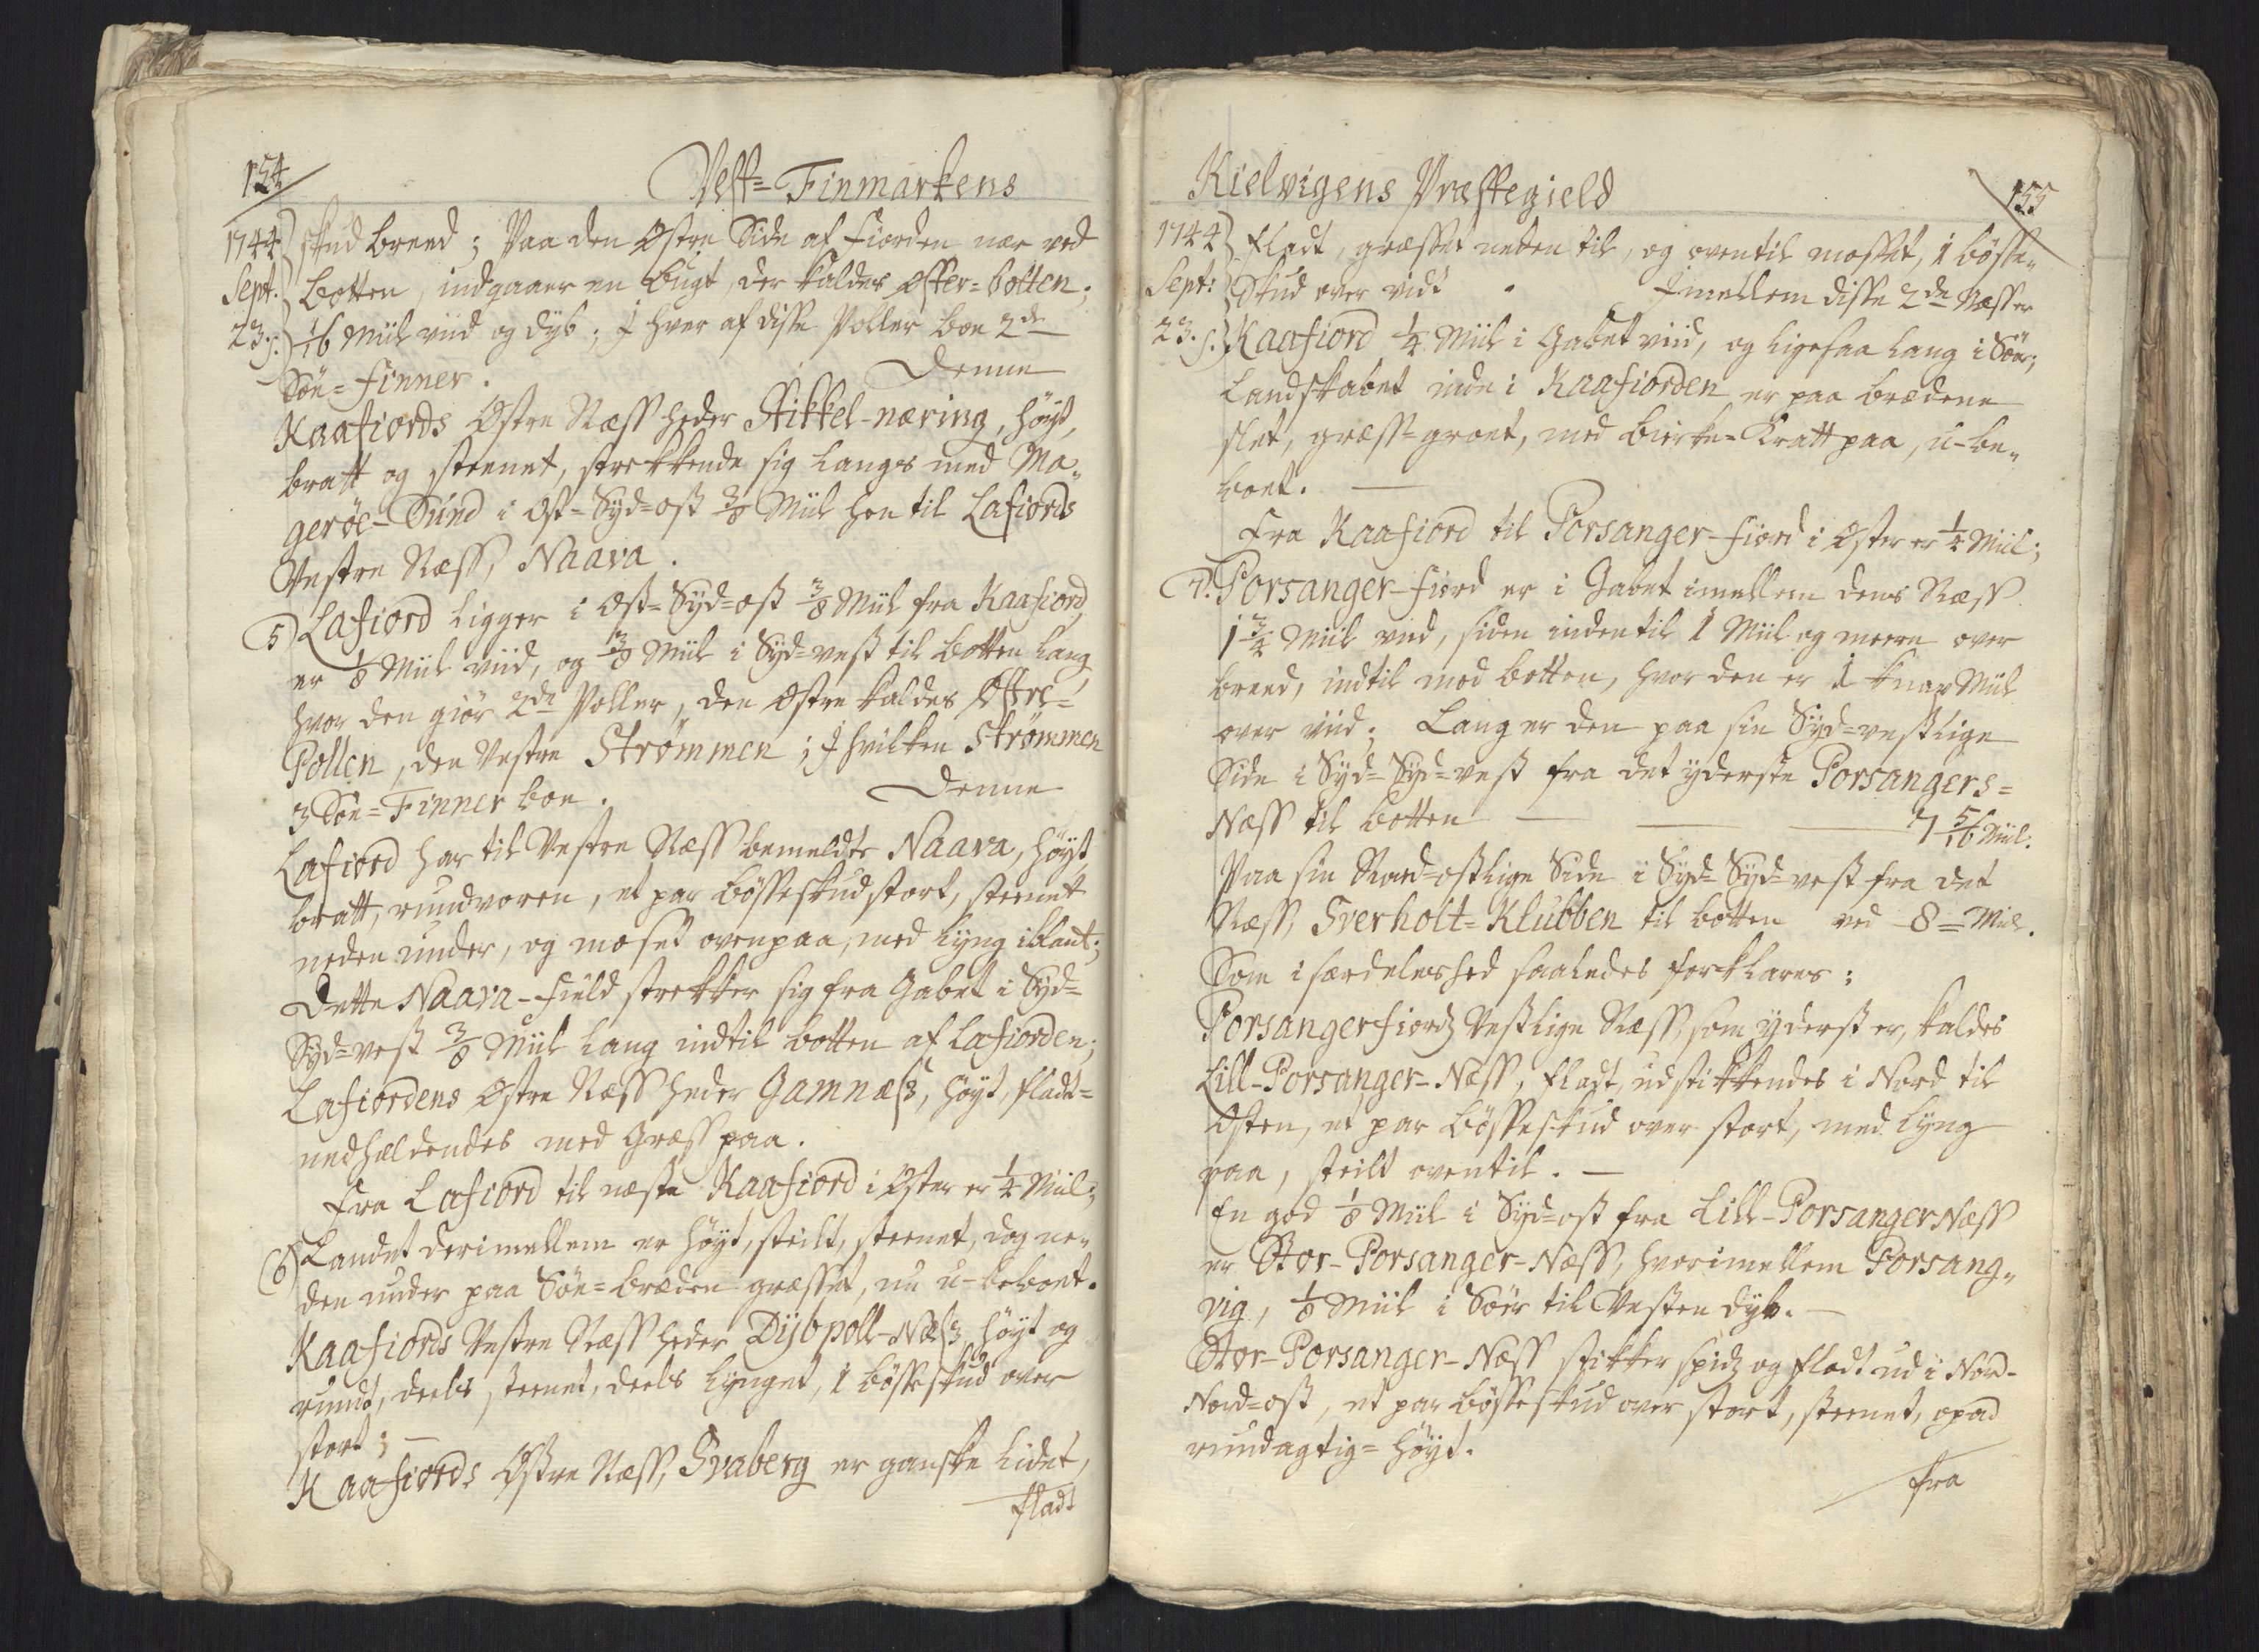 154
Vest-Finmarkens
1744 skud breed; Paa den Østre Side af Fiorden nær ved
Sept: botten, indgaaer en bugt, der kaldes Øster-botten;
23. f: 1/16 Miil viid og dyb; I hver af disse Poller boe 2de
Søe-Finner. Denne
Kaafiords Østre Næss heder Stikkel-næring, høyt,
bratt og steenet, strekkende sig langs med Ma-
gerøe-Sund i Ost-Syd-ost 3/8 Miil hen til Lafiords
Vestre Næss, Naava.
5) Lafiord ligger i Ost-Syd-ost 3/8 Miil fra Kaafiord,
er 1/8 Miil viid, og 3/8 Miil i Syd-vest til botten lang,
hvor den giør 2de Poller, den Østre kaldes Østre-
Pollen, den Vestre Strømmen; I hvilken Strømmen
3 Søe-Finner boe. Denne
Lafiord har til Vestre Næss bemeldte Naava, høyt,
bratt, rundvoren, et par bøsseskud stort, steenet
neden under, og moset ovenpaa, med lyng iblant;
Dette Naava-Field strekker sig fra Gabet i Syd-
Syd-vest 3/8 Miil lang indtil botten af Lafiorden;
Lafiordens Østre Næss heder Gamnæss, høyt, fladt-
nedheldendes med Græss paa.
Fra Lafiord til næste Kaafiord i Øster er 1/4 Miil;
6) Landet derimellem er høyt, steilt, steenet, dog ne-
den under paa Søe-bredden græsset, nu u-beboet.
Kaafiords Vestre Næss heder Dybpoll-Næss, høyt og
rundt, deels steenet, deels lynget, 1 bøsseskud over
stort; —
Kaafiords Østre Næss, Svaberg er ganske lidet,
fladt
Kielvigens Præstegield
155
1744 fladt, græsset neden til, og oventil mosset, 1 bøsse-
Sept: Skud over vidt. Imellem disse 2de Næsser
23. f. Kaafiord 1/4 Miil i Gabet viid, og ligesaa lang i Sør;
Landskabet inde i Kaafiorden er paa breedene
slet, græss-groet, med birke-Kratt paa, u-be-
boet. —
Fra Kaafiord til Porsanger-fiord i Øster er 1/4 Miil;
7. Porsanger-fiord er i Gabet imellem dens Næss
1 3/4 Miil viid, siden indentil 1 Miil og meere over
breed, indtil mod botten, hvor den er 1 knap Miil
over viid; Lang er den paa sin Syd-vestlige
Side i Syd-Syd-vest fra det yderste Porsangers-
Næss til botten — — — 7 5/16 Miil:
Paa sin Nord-ostlige Side i Syd-Syd-vest fra det
Næss, Sverholt-Klubben til botten ved 8 Miil.
Som i særdeleshed saaledes forklares:
Porsangerfiords Vestlige Næss, som yderst er, kaldes
Lill-Porsanger-Næss, fladt, udstikkendes i Nord til
Osten, et par bøsseskud over stort, med lyng
paa, steilt oventil. —
En god 1/8 Miil i Syd-ost fra Lill-Porsanger Næss
er Stor-Porsanger-Næss, hvorimellem Porsang-
vig, 1/8 Miil i Sør til Vesten dyb. —
Stor-Porsanger-Næss stikker spidz og fladt ud i Nord-
Nord-ost, et par bøsseskud over stort, steenet, opad
rundagtig-høyt.
fra